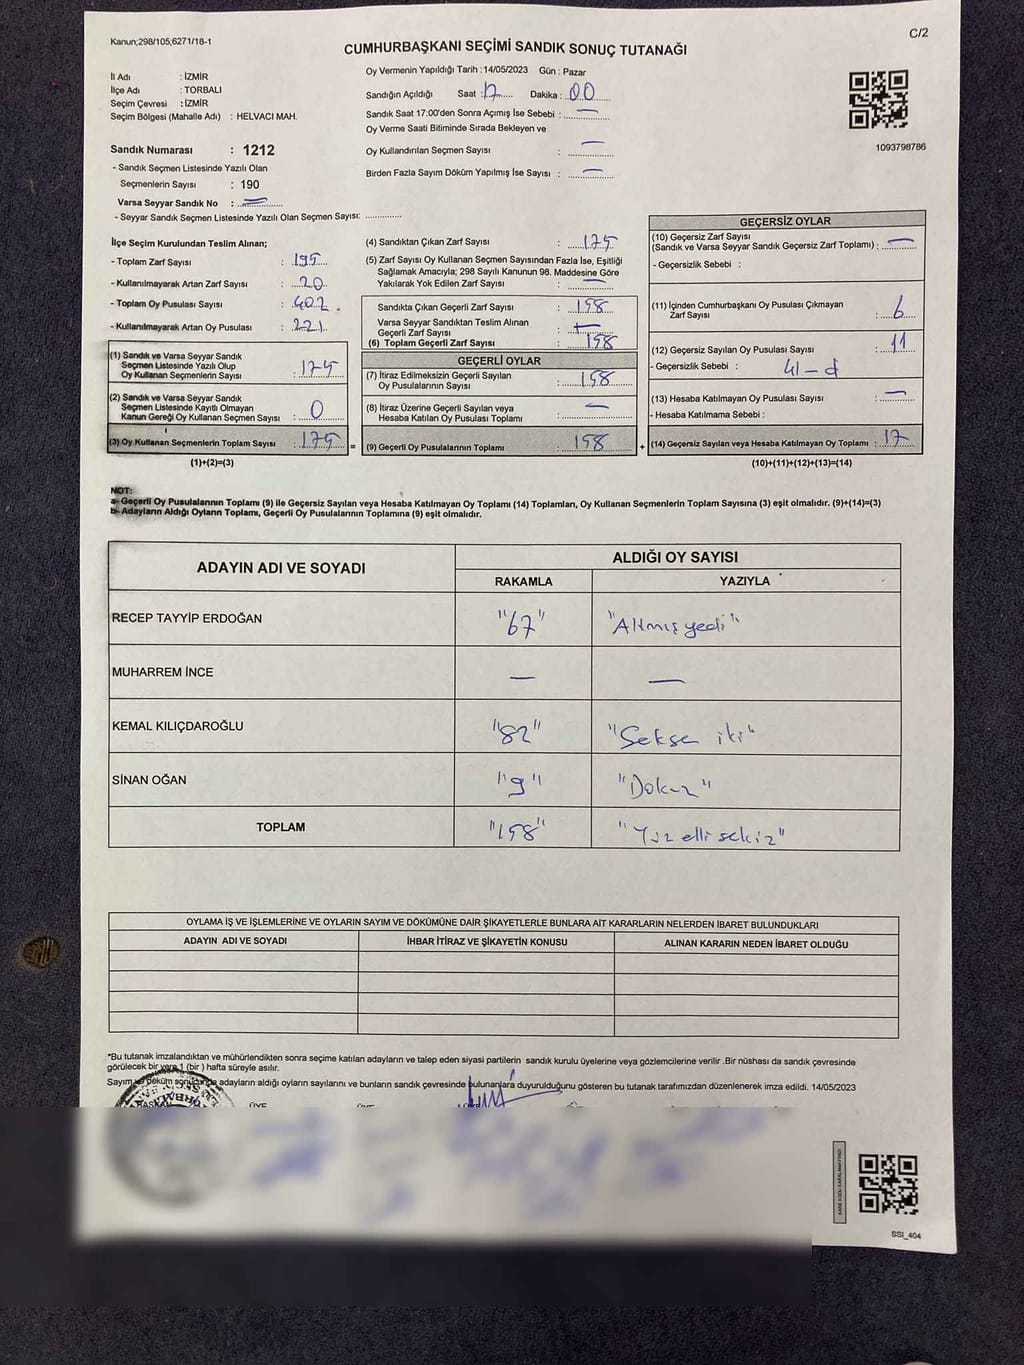 Kanun;298/105;6271/18-1
C/2
CUMHURBAŞKANI SEÇİMİ SANDIK SONUÇ TUTANAĞI
İl Adı : İZMİR
İlçe Adı : TORBALI
Seçim Çevresi : İZMİR
Seçim Bölgesi (Mahalle Adı) : HELVACI MAH.
Sandık Numarası : 1212
- Sandık Seçmen Listesinde Yazılı Olan
Seçmenlerin Sayısı : 190
Varsa Seyyar Sandık No : —
- Seyyar Sandık Seçmen Listesinde Yazılı Olan Seçmen Sayısı:
Oy Vermenin Yapıldığı Tarih : 14/05/2023 Gün : Pazar
Sandığın Açıldığı Saat : 17 Dakika : 00
Sandık Saat 17:00'den Sonra Açımış İse Sebebi : —
Oy Verme Saati Bitiminde Sırada Bekleyen ve
Oy Kullandırılan Seçmen Sayısı : —
Birden Fazla Sayım Döküm Yapılmış İse Sayısı : —
1093798786
İlçe Seçim Kurulundan Teslim Alınan;
- Toplam Zarf Sayısı : 195
- Kullanılmayarak Artan Zarf Sayısı : 20
- Toplam Oy Pusulası Sayısı : 402
- Kullanılmayarak Artan Oy Pusulası : 221
(1) Sandık ve Varsa Seyyar Sandık
Seçmen Listesinde Yazılı Olup
Oy Kullanan Seçmenlerin Sayısı : 175
(2) Sandık ve Varsa Seyyar Sandık
Seçmen Listesinde Kayıtlı Olmayan
Kanun Gereği Oy Kullanan Seçmen Sayısı : 0
(3) Oy Kullanan Seçmenlerin Toplam Sayısı : 175 =
(1)+(2)=(3)
(4) Sandıktan Çıkan Zarf Sayısı : 175
(5) Zarf Sayısı Oy Kullanan Seçmen Sayısından Fazla İse, Eşitliği
Sağlamak Amacıyla; 298 Sayılı Kanunun 98. Maddesine Göre
Yakılarak Yok Edilen Zarf Sayısı : —
Sandıkta Çıkan Geçerli Zarf Sayısı : 158
Varsa Seyyar Sandıktan Teslim Alınan
Geçerli Zarf Sayısı : —
(6) Toplam Geçerli Zarf Sayısı : 158
GEÇERLİ OYLAR
(7) İtiraz Edilmeksizin Geçerli Sayılan
Oy Pusulalarının Sayısı : 158
(8) İtiraz Üzerine Geçerli Sayılan veya
Hesaba Katılan Oy Pusulası Toplamı : —
(9) Geçerli Oy Pusulalarının Toplamı : 158 +
GEÇERSİZ OYLAR
(10) Geçersiz Zarf Sayısı
(Sandık ve Varsa Seyyar Sandık Geçersiz Zarf Toplamı) : —
- Geçersizlik Sebebi :
(11) İçinden Cumhurbaşkanı Oy Pusulası Çıkmayan
Zarf Sayısı : 6
(12) Geçersiz Sayılan Oy Pusulası Sayısı : 11
- Geçersizlik Sebebi :
(13) Hesaba Katılmayan Oy Pusulası Sayısı : —
- Hesaba Katılmama Sebebi :
(14) Geçersiz Sayılan veya Hesaba Katılmayan Oy Toplamı : 17
(10)+(11)+(12)+(13)=(14)
NOT:
a- Geçerli Oy Pusulalarının Toplamı (9) ile Geçersiz Sayılan veya Hesaba Katılmayan Oy Toplamı (14) Toplamları, Oy Kullanan Seçmenlerin Toplam Sayısına (3) eşit olmalıdır. (9)+(14)=(3)
b- Adayların Aldığı Oyların Toplamı, Geçerli Oy Pusulalarının Toplamına (9) eşit olmalıdır.
ADAYIN ADI VE SOYADI
ALDIĞI OY SAYISI
RAKAMLA YAZIYLA
RECEP TAYYİP ERDOĞAN "67" "Altmış yedi"
MUHARREM İNCE — —
KEMAL KILIÇDAROĞLU "82" "Seksen iki"
SİNAN OĞAN "9" "Dokuz"
TOPLAM "158" "Yüz elli sekiz"
OYLAMA İŞ VE İŞLEMLERİNE VE OYLARIN SAYIM VE DÖKÜMÜNE DAİR ŞİKAYETLERLE BUNLARA AİT KARARLARIN NELERDEN İBARET BULUNDUKLARI
ADAYIN ADI VE SOYADI İHBAR İTİRAZ VE ŞİKAYETİN KONUSU ALINAN KARARIN NEDEN İBARET OLDUĞU
*Bu tutanak imzalandıktan ve mühürlendikten sonra seçime katılan adayların ve talep eden siyasi partilerin sandık kurulu üyelerine veya gözlemcilerine verilir .Bir nüshası da sandık çevresinde
görülecek bir yere 1 (bir ) hafta süreyle asılır.
Sayım ve döküm sonucunda adayların aldığı oyların sayılarını ve bunların sandık çevresinde bulunanlara duyurulduğunu gösteren bu tutanak tarafımızdan düzenlenerek imza edildi. 14/05/2023
SSI_404